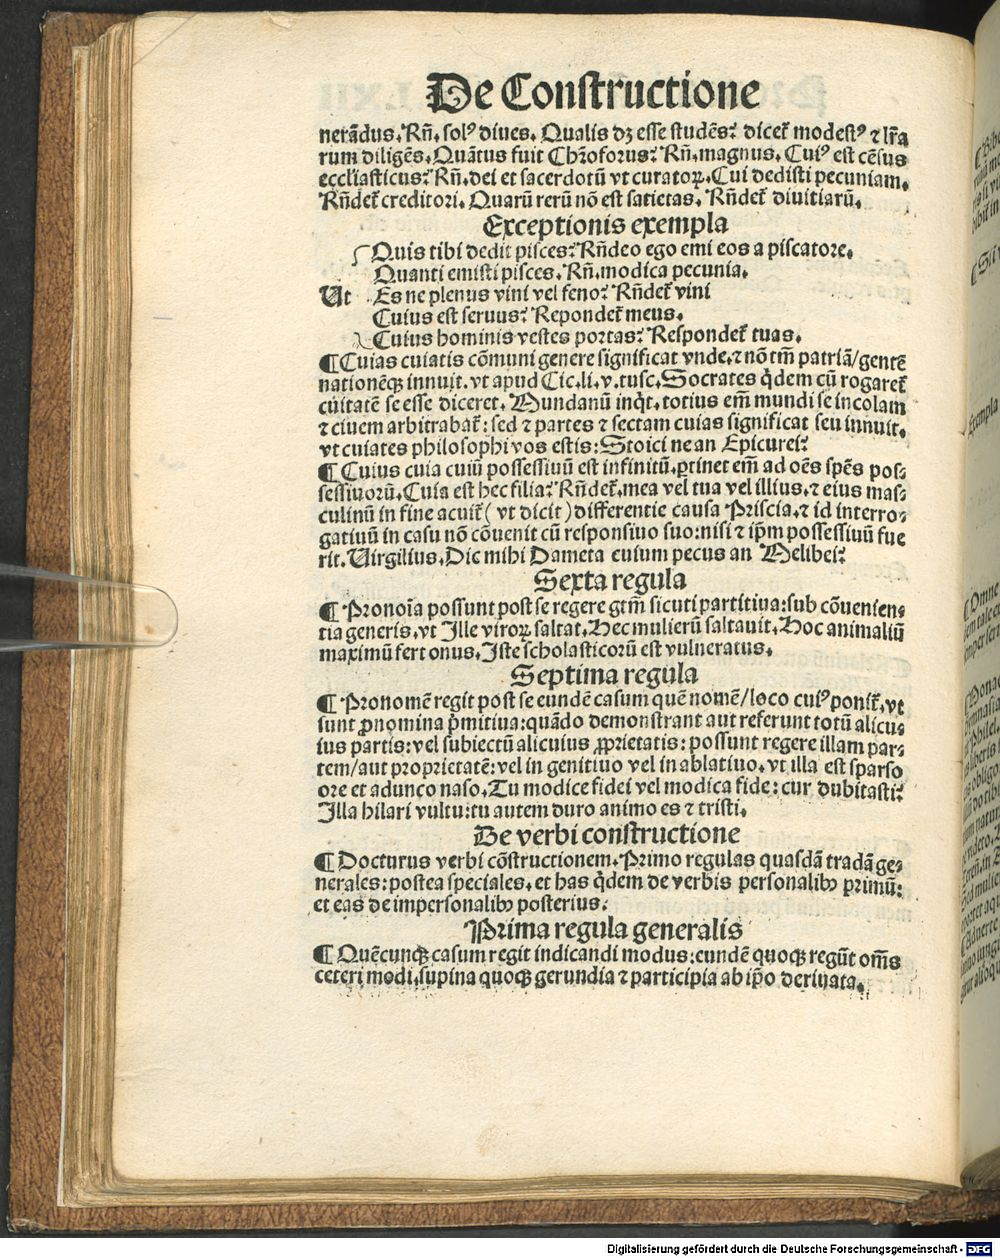 De Constructione
nerãdus. Rñ. solꝰ diues. Qualis dꝫ esse studẽs? dicet̃ modestꝰ ⁊ lr̃a
rum diligẽs. Quãtus fuit Chr̃oforus? Rñ. magnus. Cuiꝰ est cẽsus
eccl̃iasticus? Rñ. dei et sacerdotũ vt curatoꝝ. Cui dedisti pecuniam.
Rñdet̃ creditori. Quarũ rerũ nõ est satietas. Rñdet̃ diuitiarũ.
Exceptionis exempla
Quis tibi dedit pisces? Rñdeo ego emi eos a piscatore.
Quanti emisti pisces. Rñ. modica pecunia.
Ut Es ne plenus vini vel feno? Rñdet̃ vini
Cuius est seruus? Repondet̃ meus.
Cuius hominis vestes portas? Respondet̃ tuas.
¶ Cuias cuiatis cõmuni genere significat vnde. ⁊ nõ tm̃ patriã/gentẽ
nationẽqꝫ innuit. vt apud Cic. li. v. tusc. Socrates q̃dem cũ rogaret̃
cuitatẽ se esse diceret. Mundanũ inq̃t. totius em̃ mundi se incolam
⁊ ciuem arbitrabat̃: sed ⁊ partes ⁊ sectam cuias significat seu innuit.
vt cuiates philosophi vos estis: Stoici ne an Epicurei?
¶ Cuius cuia cuiũ possessiuũ est infinitũ. ꝑtinet em̃ ad oẽs spẽs pos⸗
sessiuorũ. Cuia est hec filia? Rñdet̃. mea vel tua vel illius. ⁊ eius mas⸗
culinũ in fine acuit̃ (vt dicit) differentie causa Priscia. ⁊ id interro⸗
gatiuũ in casu nõ cõuenit cũ responsiuo suo: nisi ⁊ ip̃m possessiuũ fue
rit. Uirgilius. Dic mihi Dameta cuium pecus an Melibei?
Sexta regula
¶ Pronoĩa possunt post se regere gtm̃ sicuti partitiua: sub cõuenien⸗
tia generis. vt Ille viroꝝ saltat. Hec mulierũ saltauit. Hoc animaliũ
maximũ fert onus. Iste scholasticorũ est vulneratus.
Septima regula
¶ Pronomẽ regit post se eundẽ casum quẽ nomẽ/loco cuiꝰ ponit̃. vt
sunt ꝓnomina p̃mitiua: quãdo demonstrant aut referunt totũ alicu⸗
ius partis: vel subiectũ alicuius ꝓprietatis: possunt regere illam par⸗
tem/aut proprietatẽ: vel in genitiuo vel in ablatiuo. vt illa est sparso
ore et adunco naso. Tu modice fidei vel modica fide: cur dubitasti?
Illa hilari vultu: tu autem duro animo es ⁊ tristi.
De verbi constructione
¶ Docturus verbi cõstructionem. Primo regulas quasdã tradã ge⸗
nerales: postea speciales. et has q̃dem de verbis personalibꝫ primũ:
et eas de impersonalibꝫ posterius.
Prima regula generalis
¶ Quẽcunqꝫ casum regit indicandi modus: eundẽ quoqꝫ regũt om̃s
ceteri modi. supina quoqꝫ gerundia ⁊ participia ab ip̃o deriuata.
Digitalisierung gefördert durch die Deutsche Forschungsgemeinschaft - DFG